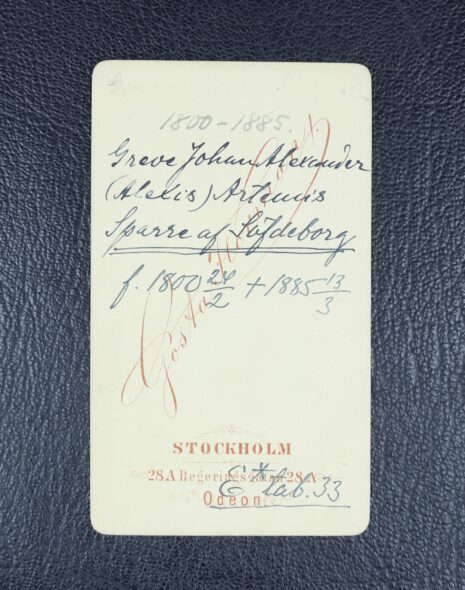 1800-1885.
Greve Johan Alexander
(Alexis) Artemis
Sparre af Söfdeborg
f. 1800 24/2 + 1885 13/3
Gösta Florman
STOCKHOLM
28A Regeringsgatan 28A
E* tab. 33
Odeon